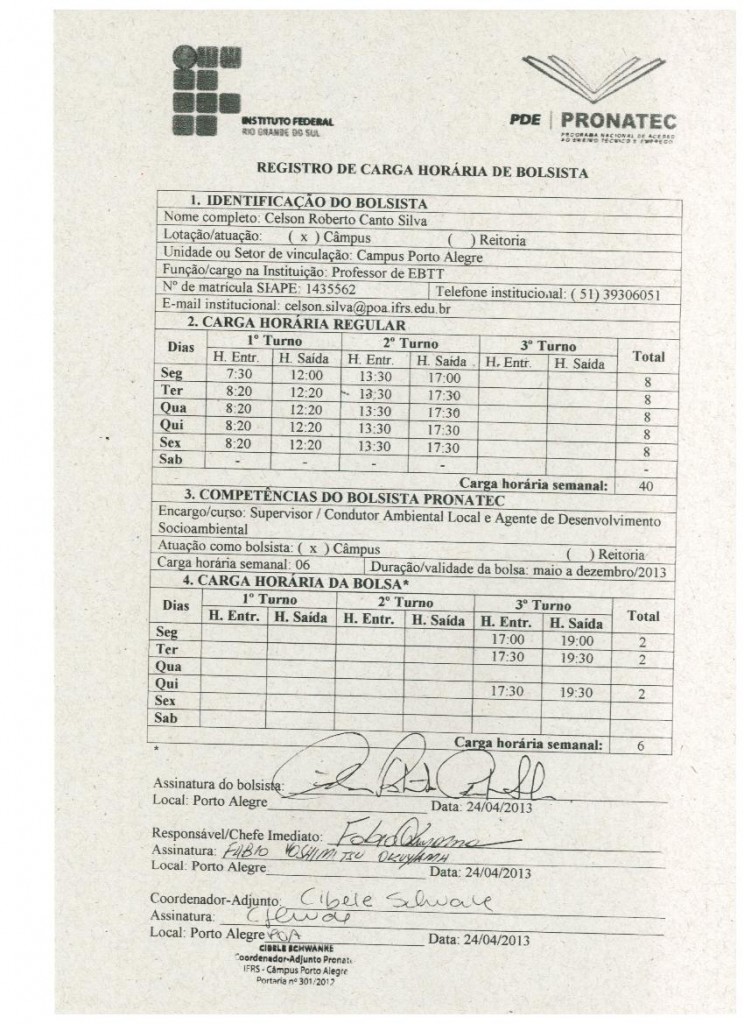 INSTITUTO FEDERAL
RIO GRANDE DO SUL
PDE | PRONATEC
PROGRAMA NACIONAL DE ACESSO
AO ENSINO TÉCNICO E EMPREGO
REGISTRO DE CARGA HORÁRIA DE BOLSISTA
1. IDENTIFICAÇÃO DO BOLSISTA
Nome completo: Celson Roberto Canto Silva
Lotação/atuação: ( x ) Câmpus ( ) Reitoria
Unidade ou Setor de vinculação: Campus Porto Alegre
Função/cargo na Instituição: Professor de EBTT
Nº de matrícula SIAPE: 1435562 Telefone institucional: ( 51) 39306051
E-mail institucional: celson.silva@poa.ifrs.edu.br
2. CARGA HORÁRIA REGULAR
Dias 1º Turno 2º Turno 3º Turno Total
H. Entr. H. Saída H. Entr. H. Saída H. Entr. H. Saída
Seg 7:30 12:00 13:30 17:00 8
Ter 8:20 12:20 13:30 17:30 8
Qua 8:20 12:20 13:30 17:30 8
Qui 8:20 12:20 13:30 17:30 8
Sex 8:20 12:20 13:30 17:30 8
Sab - - - - -
Carga horária semanal: 40
3. COMPETÊNCIAS DO BOLSISTA PRONATEC
Encargo/curso: Supervisor / Condutor Ambiental Local e Agente de Desenvolvimento
Socioambiental
Atuação como bolsista: ( x ) Câmpus ( ) Reitoria
Carga horária semanal: 06 Duração/validade da bolsa: maio a dezembro/2013
4. CARGA HORÁRIA DA BOLSA*
Dias 1º Turno 2º Turno 3º Turno Total
H. Entr. H. Saída H. Entr. H. Saída H. Entr. H. Saída
Seg 17:00 19:00 2
Ter 17:30 19:30 2
Qua
Qui 17:30 19:30 2
Sex
Sab
Carga horária semanal: 6
*
Assinatura do bolsista:
Local: Porto Alegre Data: 24/04/2013
Responsável/Chefe Imediato:
Assinatura: FABIO YOSHIMITSU OKUYAMA
Local: Porto Alegre Data: 24/04/2013
Coordenador-Adjunto: Cibele Schwanke
Assinatura:
Local: Porto Alegre POA Data: 24/04/2013
CIBELE SCHWANKE
Coordenador-Adjunto Pronatec
IFRS - Câmpus Porto Alegre
Portaria nº 301/2012